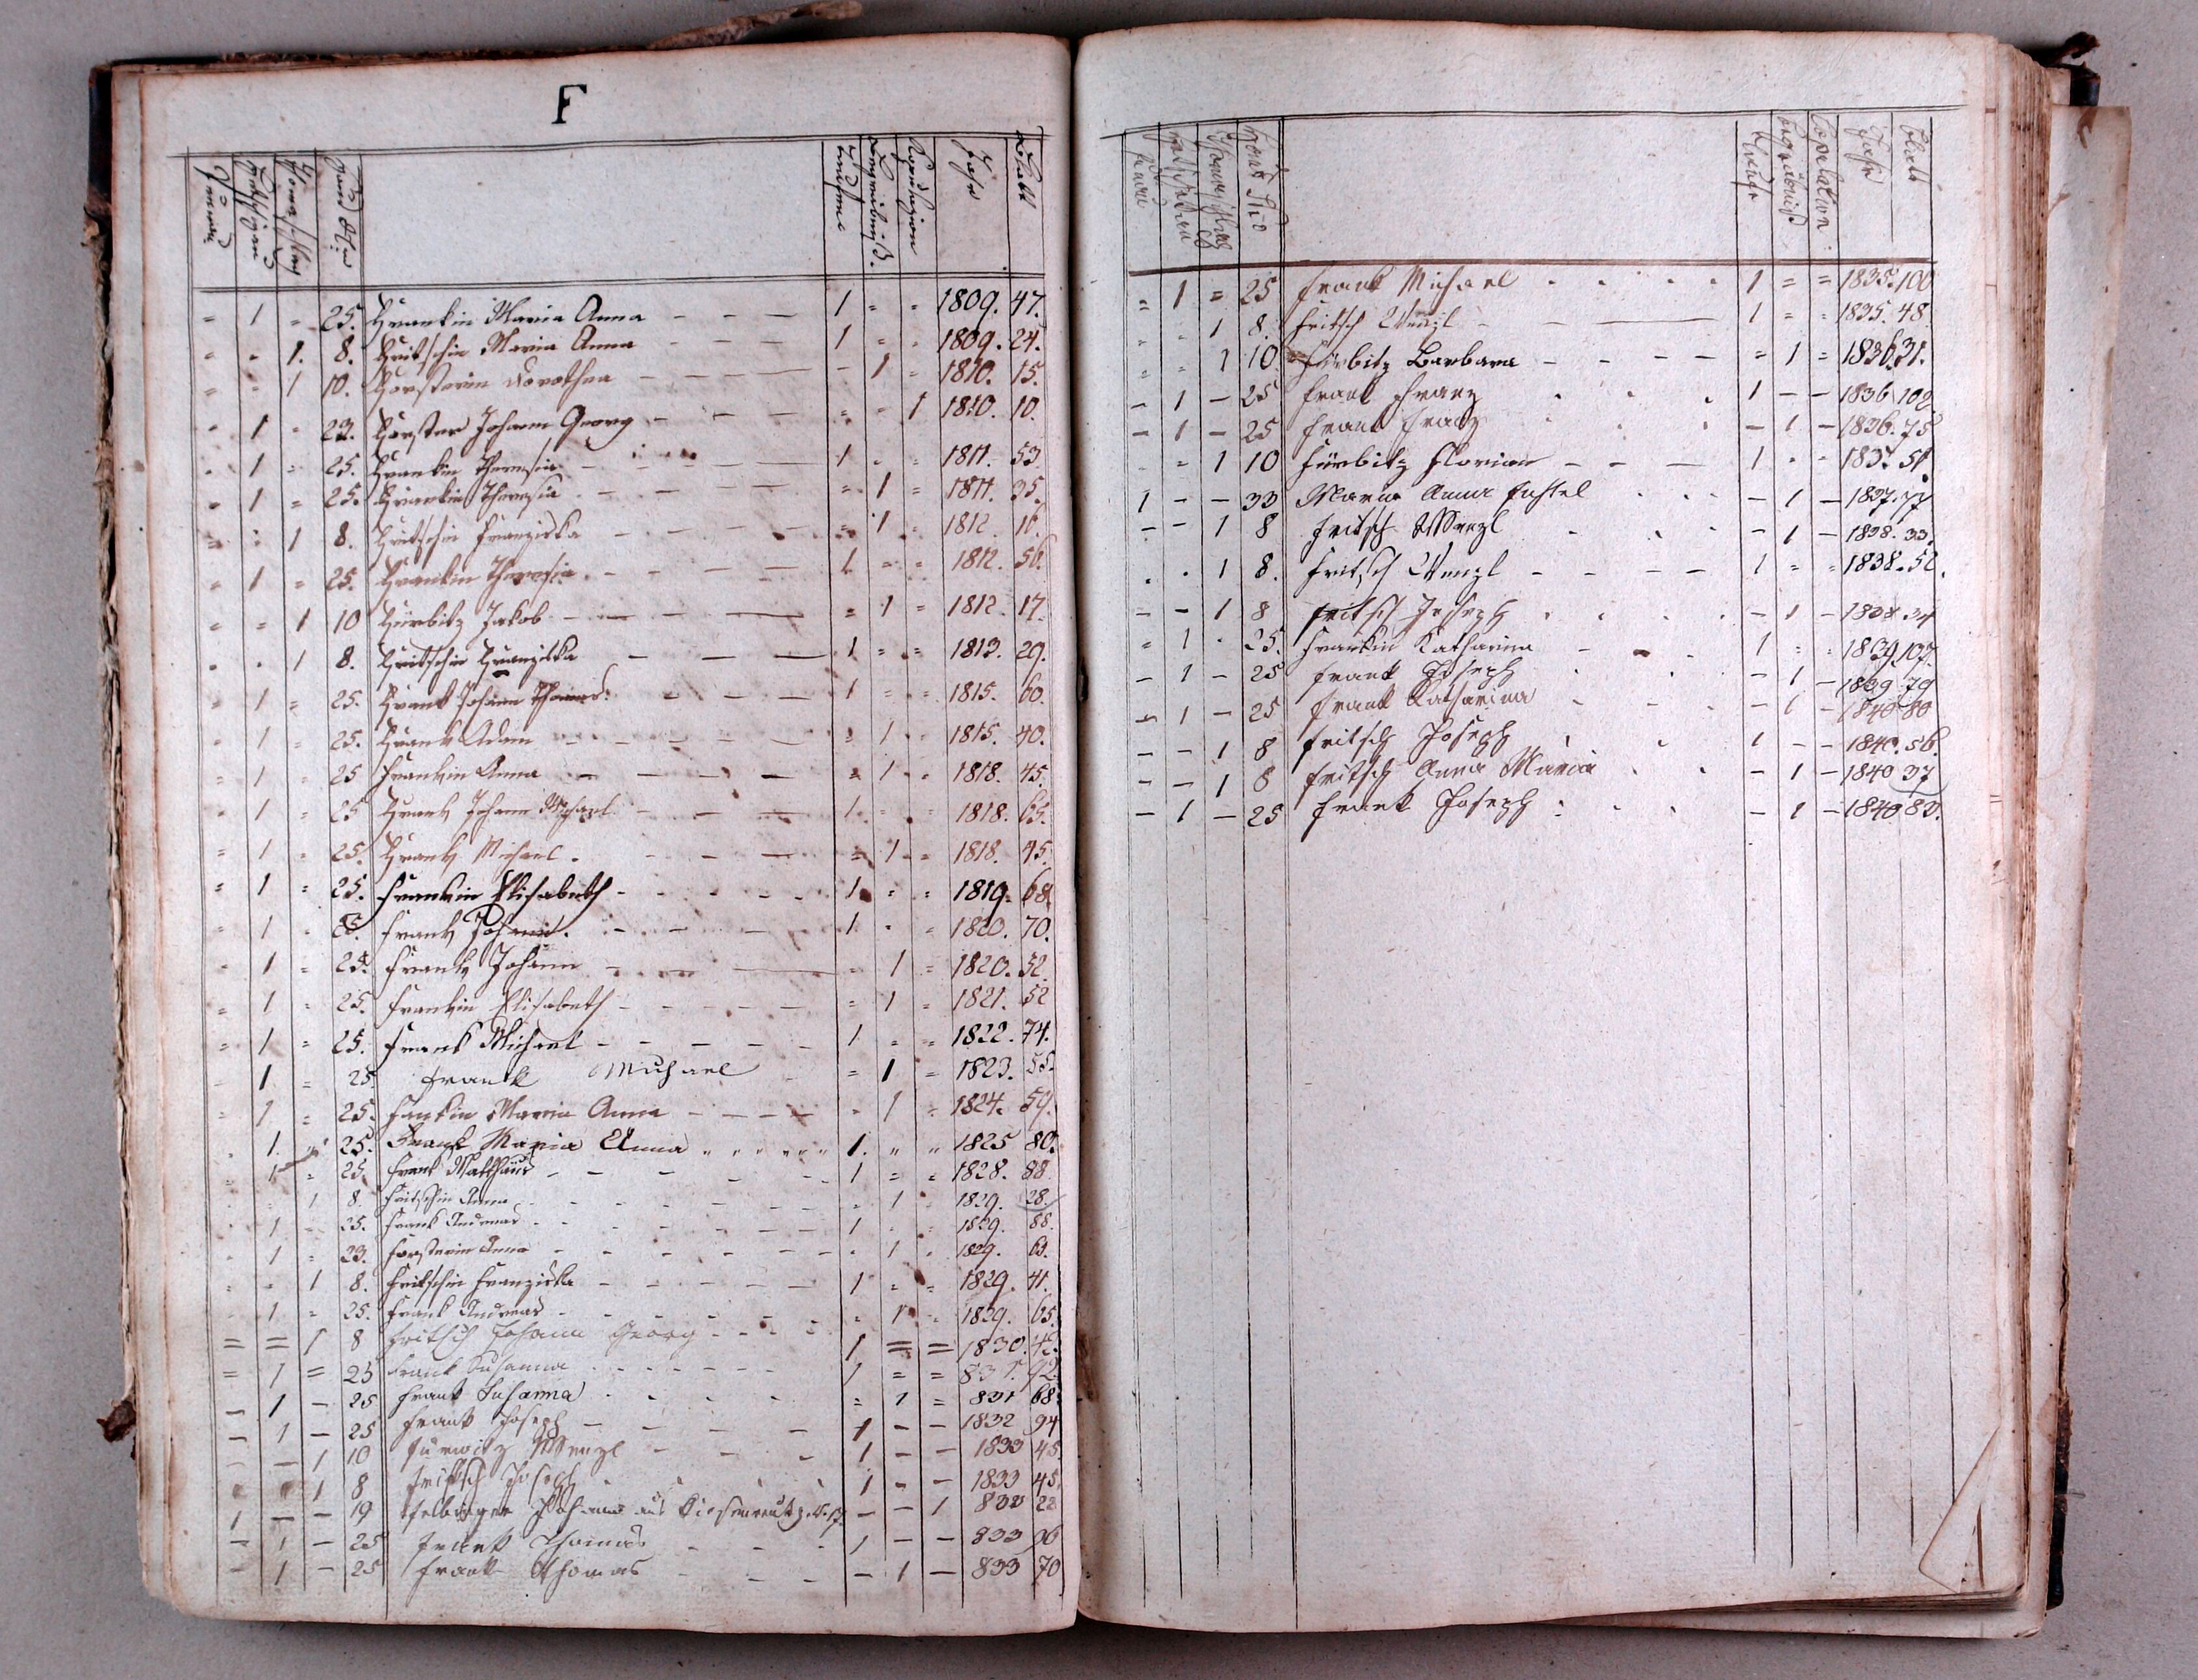 F
Haus No
Taufung Begräbniß. Kopulazion Jahr Blatt
= 1 = 25. Frankin Maria Anna 1 = = 1809. 47.
= = 1. 8. Fritschin Maria Anna 1 = = 1809. 24.
= = 1 10. Försterin Dorothea - 1 = 1810. 15.
= 1 = 23. Förster Johann Georg = = 1 1810. 10.
= 1 = 25. Frankin Theresia 1 = = 1811. 53.
= 1 = 25. Frankin Theresia = 1 = 1811. 35.
= = 1 8. Fritschin Franziska = 1 = 1812. 16.
= 1 = 25. Frankin Theresia 1 = = 1812. 56.
= = 1 10 Fürbitz Jakob = 1 = 1812. 17.
= = 1 8. Fritschin Franziska 1 = = 1813. 29.
= 1 = 25. Frank Johann Thomas 1 = = 1815. 60.
= 1 = 25. Frank Adam = 1 = 1815. 40.
= 1 = 25 Frankin Anna = 1 = 1818. 45.
= 1 = 25 Frank Johann Michael 1 = = 1818. 65.
= 1 = 25. Frank Michael = 1 = 1818. 45.
= 1 = 25. Frankin Elisabeth 1 = = 1819. 68.
= 1 = 25. Frank Johann 1 = = 1820. 70.
= 1 = 25. Frank Johann = 1 = 1820. 52.
= 1 = 25. Frankin Elisabeth = 1 = 1821. 52
= 1 = 25. Frank Michael 1 = = 1822. 74.
= 1 = 25. Frank Michael = 1 = 1823. 55.
= 1 = 25. Fankin Maria Anna = 1 = 1824. 59.
1. 25. Frank Maria Anna 1. " " 1825 80.
= 1 = 25. Frank Matthäus 1 = = 1828. 88.
= = 1 8. Fritschin Anna = 1 = 1829. 28.
= 1 = 25. Frank Andreas 1 = = 1829. 88.
= 1 = 23. Forsterin Anna = 1 = 1829. 63.
= = 1 8. Fritschin Franziska 1 = = 1829. 41.
= 1 = 25. Frank Andreas = 1 = 1829. 65.
= = 1 8 Fritsch Johann Georg 1 = = 1830. 42.
= 1 = 25 Frank Susanna 1 = = 831. 92.
- 1 - 25 Frank Susanna = 1 = 831 68.
- 1 - 25 Frank Joseph 1 - - 1832 94
- - 1 10 Furwitz Wenzl 1 - - 1833 45.
1 8 Fritsch Joseph 1 - - 1833 45.
1 - - 19 Johann aus - - 1 22
- 1 - 25 Frank Thomas 1 - - 833 96
- 1 - 25 Frank Thomas - 1 - 833 70
Haus No
Taufe Begräbniß Copulation. Jahr Blatt
= 1 = 25 Frank Michael 1 = = 1835. 100
= = 1 8. Fritsch Wenzl 1 = = 1835. 48.
= = 1 10. Fürbitz Barbara = 1 = 1836. 31.
- 1 - 25 Frank Franz 1 - - 1836 102
- 1 - 25 Frank Franz - 1 - 1836. 75
= = 1 10 Fürbitz Florian 1 = = 1837. 51
1 - - 33 Maria Anna - 1 - 1837. 77
- - 1 8 Fritsch Wenzl - 1 - 1838. 33.
. . 1 8. Fritsch Wenzl 1 = = 1838. 52.
- - 1 8 Fritsch Joseph - 1 - 1838. 34
= 1 . 25. Frankin Katharina 1 = = 1839 107.
- 1 - 25 Frank Joseph - 1 - 1839 79
- 1 - 25 Frank Katharina - 1 - 1840 80
- - 1 8 Fritsch Joseph 1 - - 1840. 56.
- - 1 8 Fritsch Anna Maria - 1 - 1840 37
- 1 - 25 Frank Joseph - 1 - 1840 83.